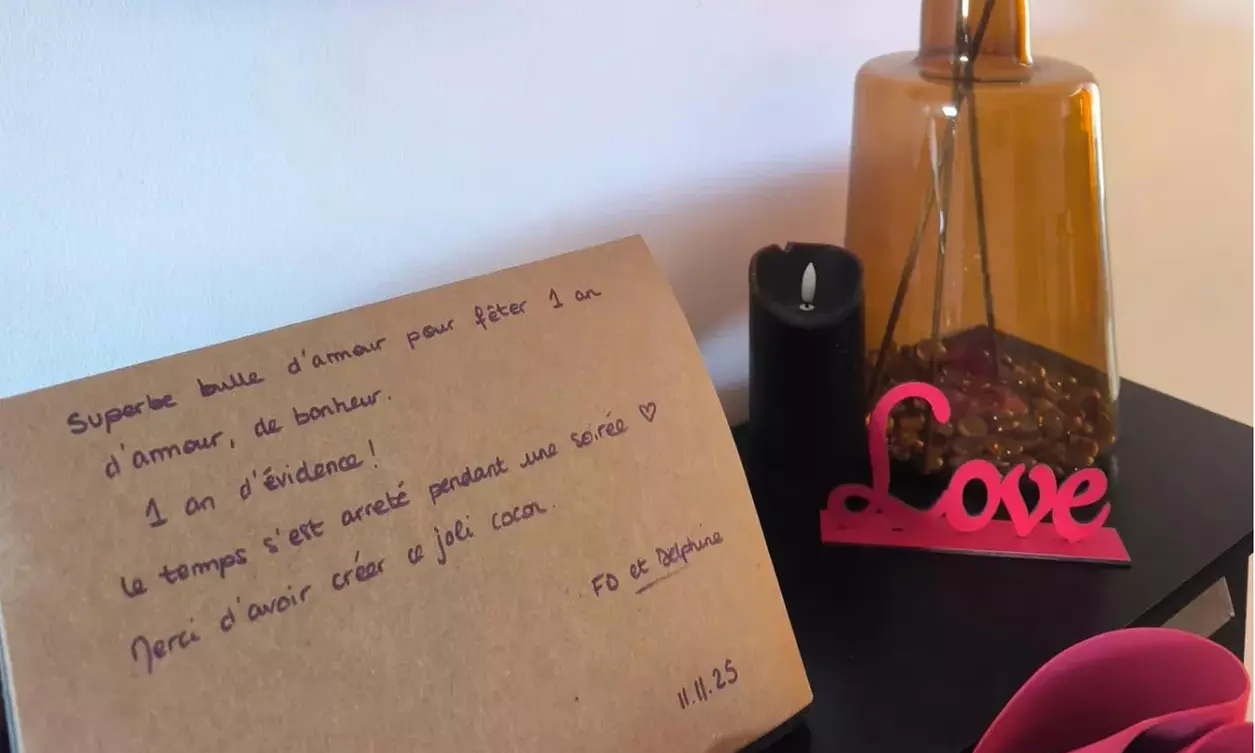 Superbe bulle d'amour pour fêter 1 an
d'amour, de bonheur.
1 an d'évidence !
Le temps s'est arreté pendant une soirée ♡
Merci d'avoir créer ce joli cocon.
FD et Delphine
11.11.25
Love